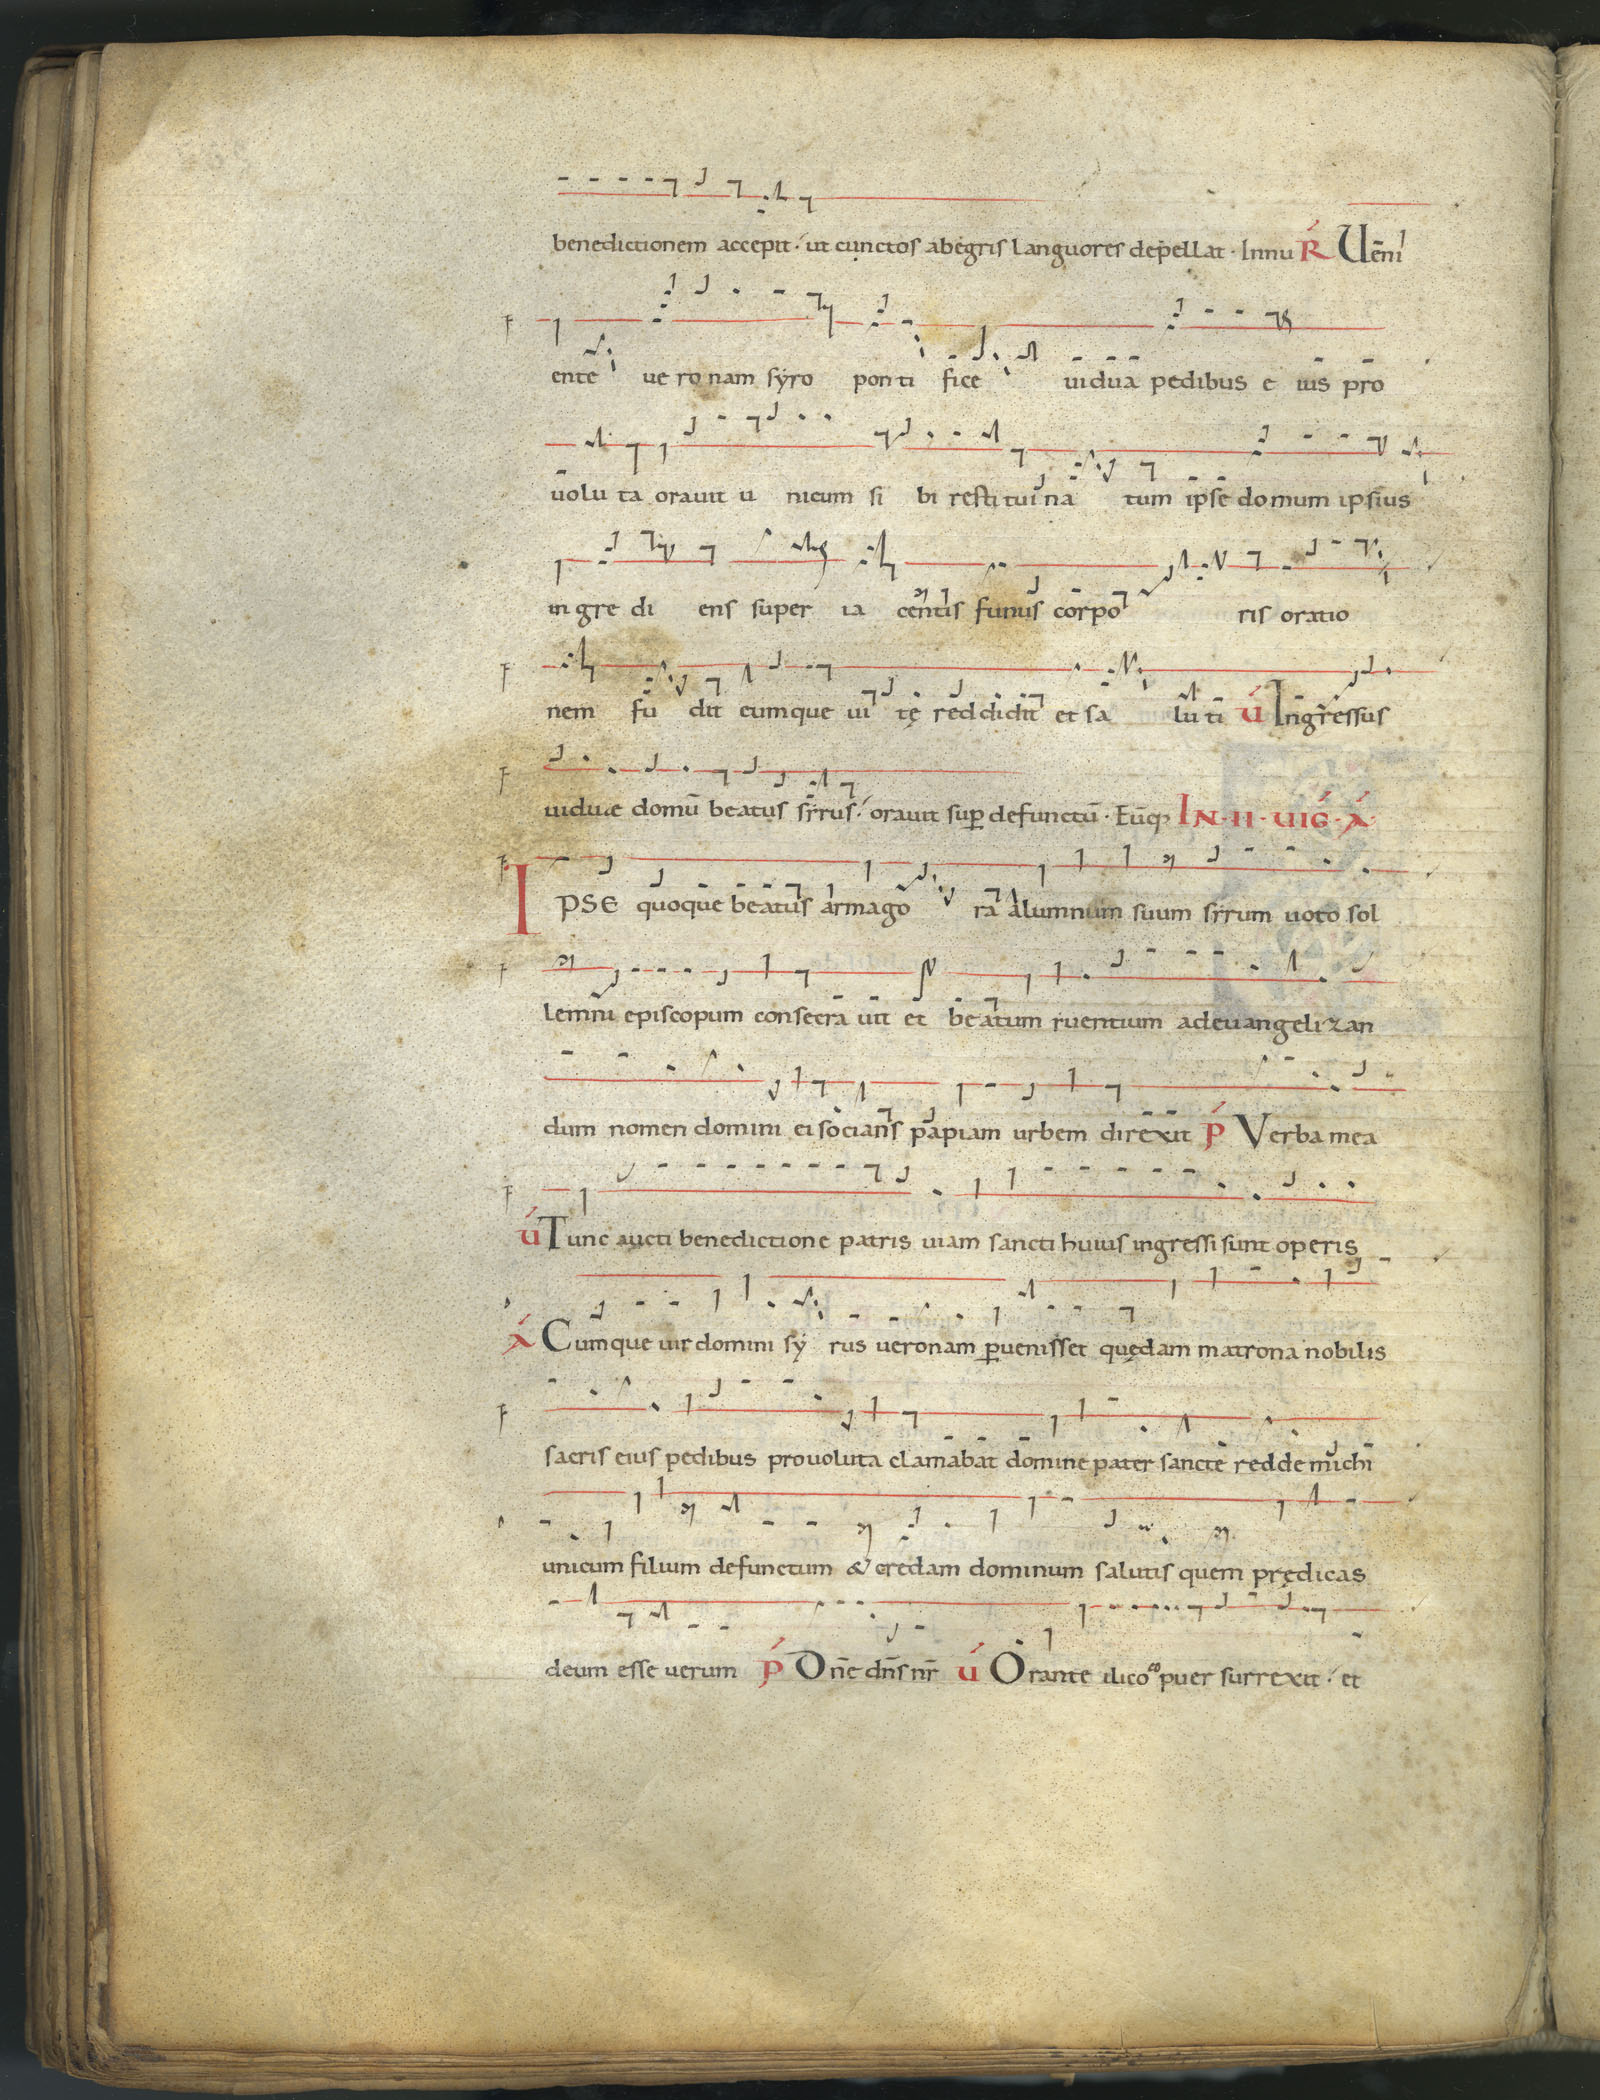 benedictionem accepit · ut cunctos abegris languores depellat · Innu R Uēni
ente ue ro nam syro pon ti fice uidua pedibus e ius pro
uolu ta orauit u nicum si bi restitui na tum ipse domum ipsius
in gre di ens super ia centis funus corpo ris oratio
nem fu dit eumque ui tę reddidit et sa lu ti V Ingressus
uiduae domū beatus syrus · orauit sup defunctū · Eūq IN · II · VIG · A
IPSE quoque beatus armago ra alumnum suum syrum uoto sol
lemni episcopum consecra uit et beatum iuentium adeuangelizan
dum nomen domini ei socians papiam urbem direxit P Verba mea
V Tunc aucti benedictione patris uiam sancti huius ingressi sunt operis
A Cumque uir domini sy rus ueronam puenisset quędam matrona nobilis
sacris eius pedibus prouoluta clamabat domine pater sancte redde michi
unicum filium defunctum & credam dominum salutis quem prędicas
deum esse uerum P Dne dns nr V Orante ilico puer surrexit · et